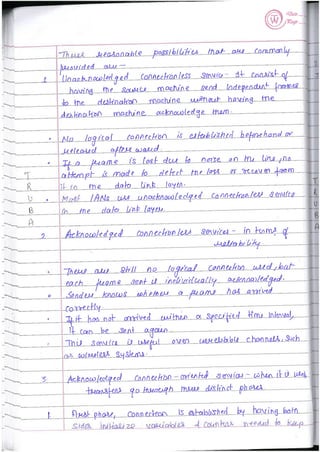 Three reasonable possibilities that are commonly
provided are -
1. Unacknowledged Connectionless Service - It consist of
having the source machine send independent frames
to the destination machine without having the
destination machine acknowledge them.
• No logical connection is established beforehand or
released afterward.
• If a frame is lost due to noise on the line, no
attempt is made to detect the loss or recover from
it in the data link layer.
• Most LANs use unacknowledged connectionless service
in the data link layer.
2. Acknowledged connectionless services - in terms of
reliability
• There are still no logical connection used, but
each frame sent is individually acknowledged.
• Sender knows whether a frame has arrived
correctly.
• If it has not arrived within a specified time interval,
it can be sent again.
• This service is useful over unreliable channels, such
as wireless systems.
3. Acknowledged connection-oriented service - when it is used
transfers go through three distinct phases.
1. First phase, connection is established by having both
sides initialize variables & counters needed to keep
T
R
U
B
A